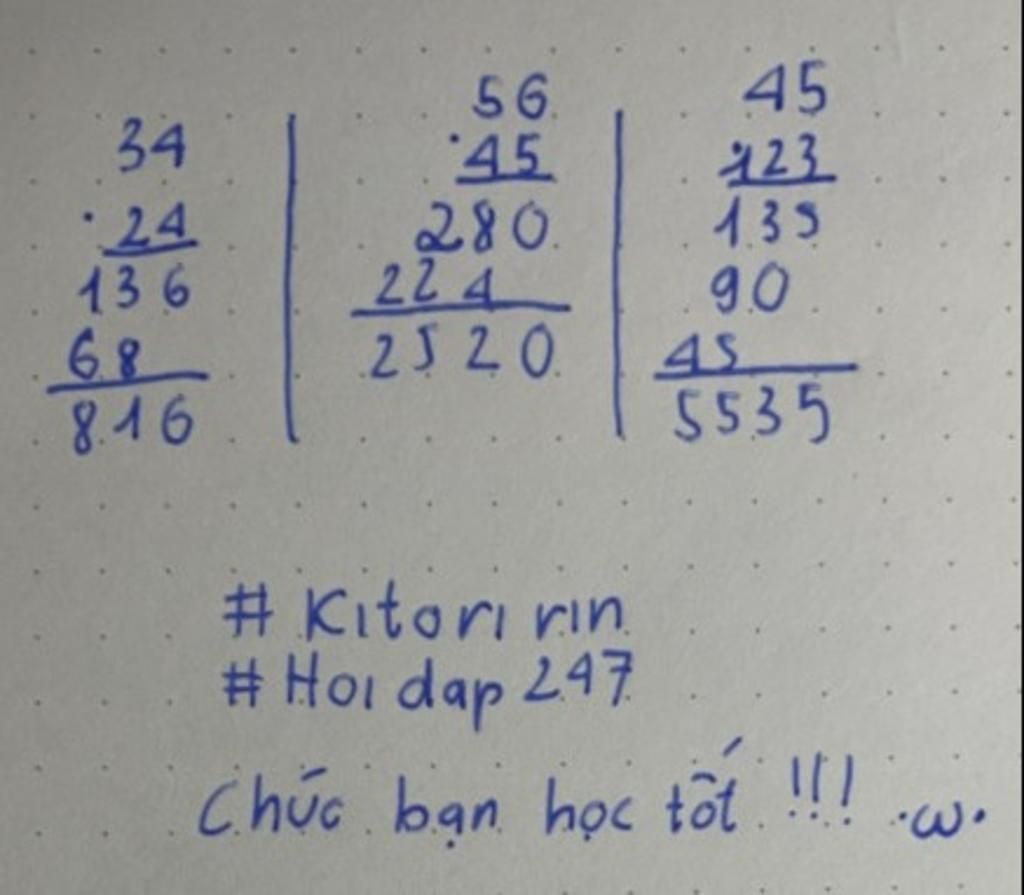 34
. 24
136
68
816
56
. 45
280
224
2520
45
. 123
135
90
45
5535
# Kitori rin
# Hoi dap 247
Chúc bạn học tốt !!! .ω.